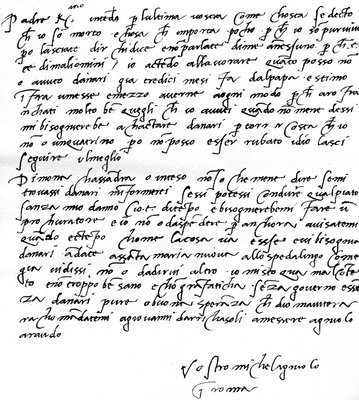 Padre Rev.mo intendo p[er] lultima vostra come chosta se decto
ch io so morto e chosa ch importa pocho p[er] ch io so pur vivo
po lasciate dir chi dice e no parlate di me a nessuno p[er] ch e ce
ce di mali omini io actendo allavorare quato posso no
o avuto danari gia tredici mesi fa dal papa e stimo
i fra un mese e mezzo averne a ogni modo p[er] ch aro fran
chati molto be quegli ch io o avuti quado no me ne dessi
mi bisognierebe achactare danari p[er] torn r costa ch io no
no o un quatrino po no posso esser rubato idio lasci
seguire il meglio
Di mona chassadra o inteso no so che me ne dire se mi
trovassi danari m informerei se si potessi condurre qua il piato
sanza mio danno cioe di tepo e bisogniere be mi fare u
prochuratore e io no o da spedere p[er] anchora avisatemi
quado e tepo chome la cosa va e sse vi bisognia
danari adate a ssata maria nuova allo spedalingo come
gia vi dissi no o da dirvi altro io mi sto qua mal cote
to e no troppo be sano e cho gra faticha senza governo e sse
za danari pure o buona speraza ch dio m autera
rachomadatemi a giovanni da richasoli a messere agniolo
araudo
Vostro michelagniolo
i roma